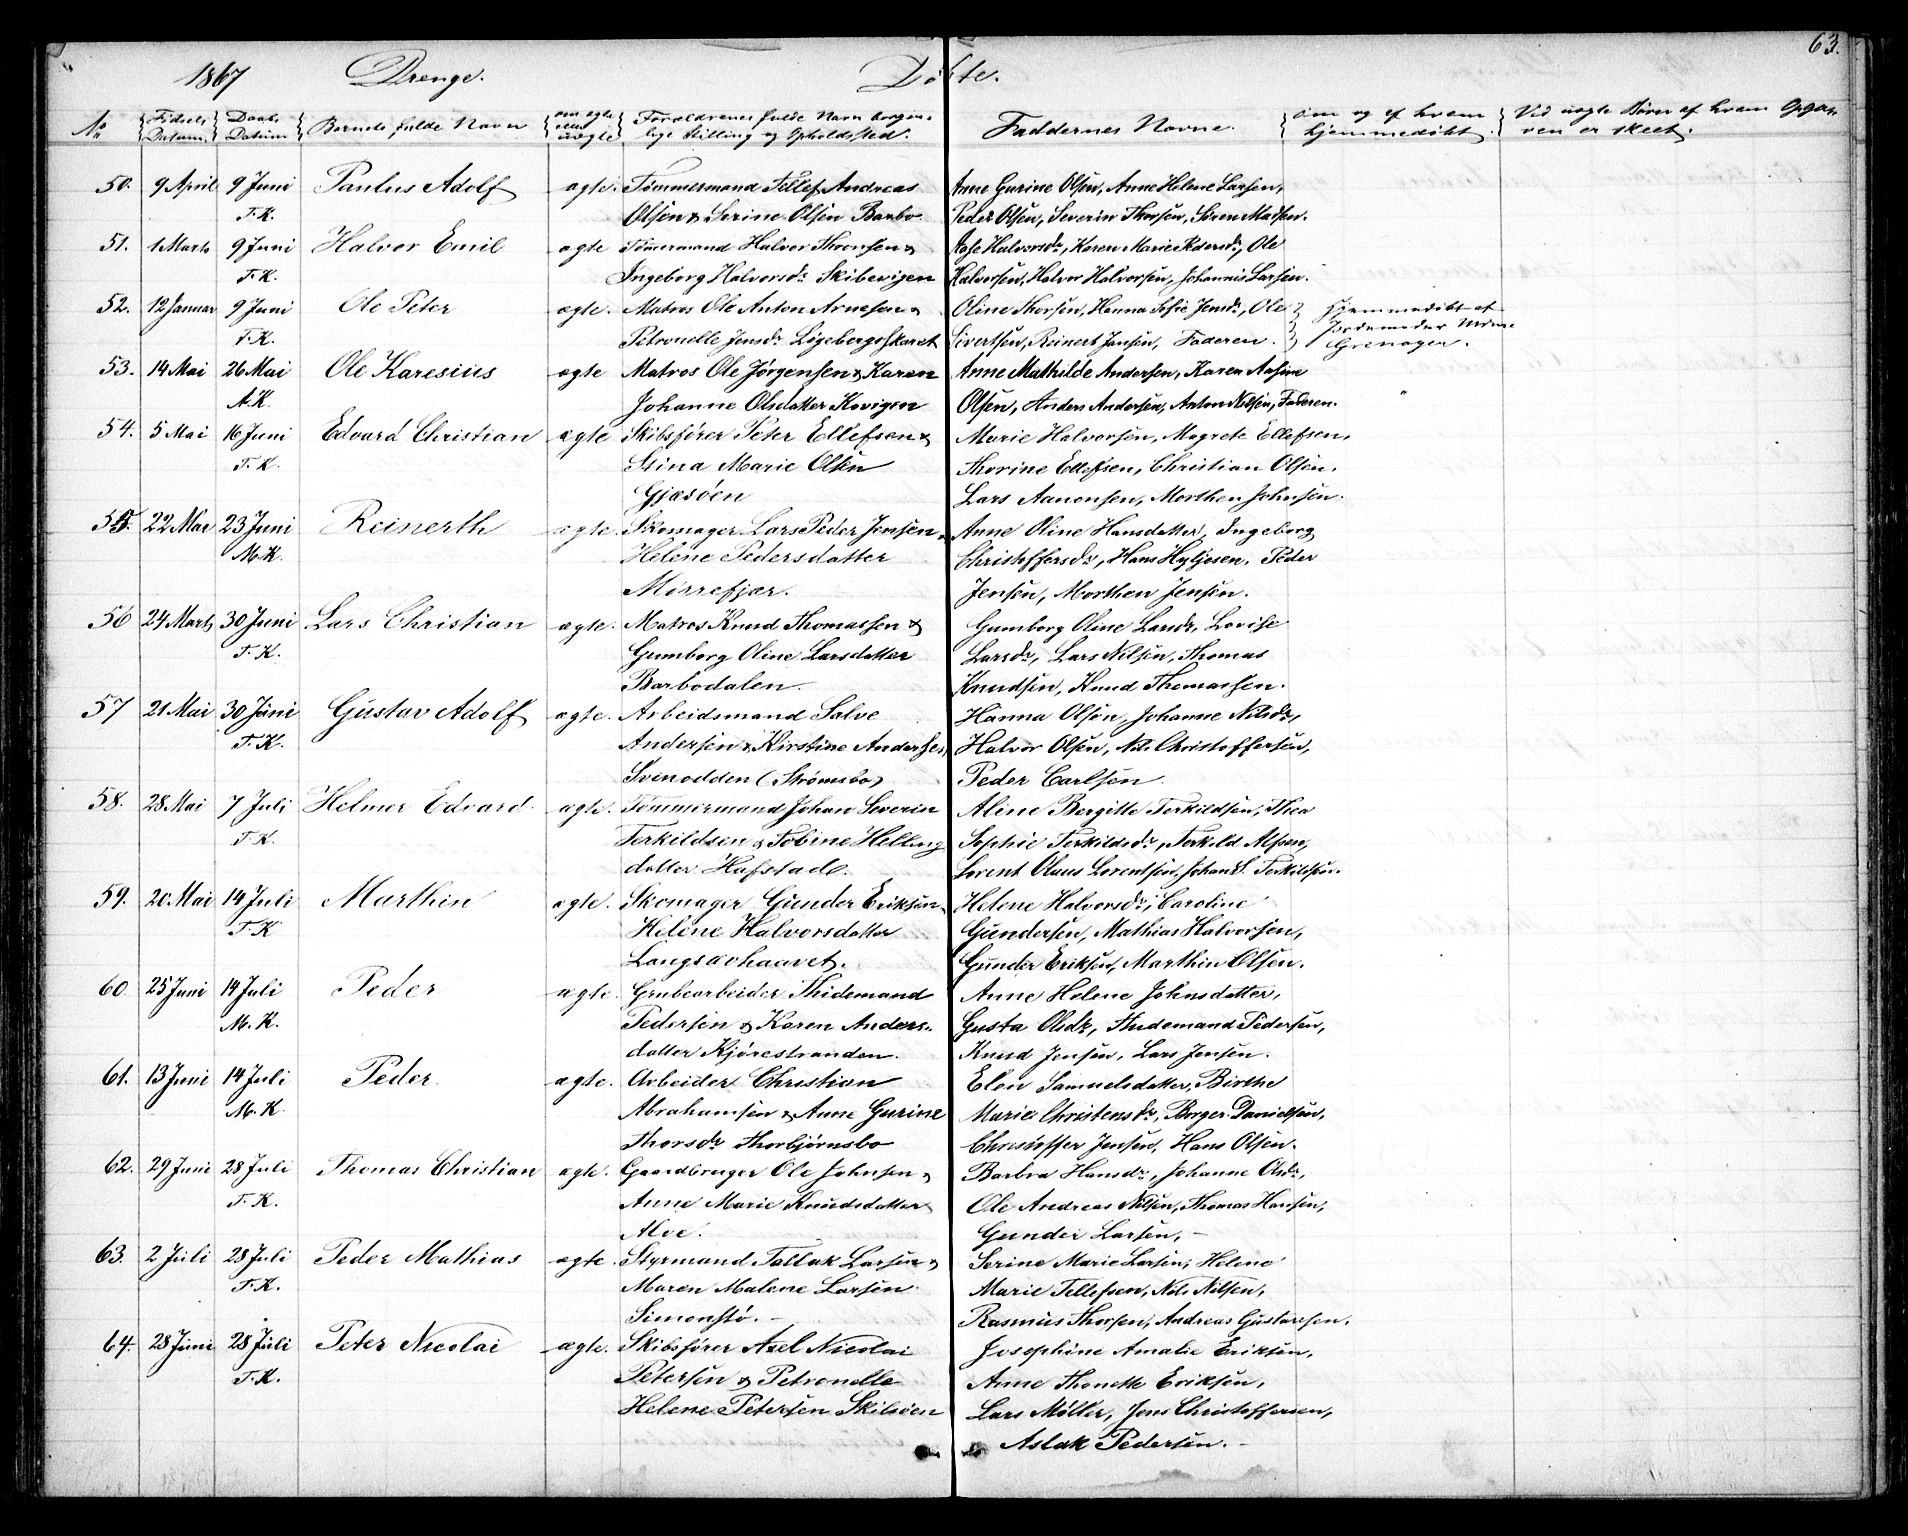 63.
1867 Drenge. Døbte.
No Fødsels Datum. Daabs Datum Barnets fulde Navn om ægte eller uægte Forældrenes fulde Navn borger- lige Stilling og Opholdsted. Faddernes Navne. om og af hvem hjemmedøbt. Vid uægte Børn af hvem Opga- ven er skeet.
50. 9 April 9 Juni Paulus Adolf ægte. Tømmermand Tellef Andreas Anne Gurine Olsen, Anne Helene Larsen,
T.K. Olsen & Serine Olsen Barbo. Peder Olsen, Severin Thorsen, Søren Madsen.
51. 1 Marts 9 Juni Halvor Emil ægte Tømmermand Halvor Thronsen & Aase Halvorsdr, Karen Marie Pedersdr, Ole
T.K. Ingeborg Halvorsdr Skibevigen Halvorsen, Halvor Halvorsen, Johannis Larsen.
52. 12 Januar 9 Juni Ole Peter ægte. Matros Ole Anton Arnesen & Oline Thorsen, Hanna Sofie Jensdr, Ole Hjemmedøbt af
T.K. Petronelle Jensdr Ligebergskaret Sivertsen, Reinert Jansen, Faderen. Jordemoder
53. 14 Mai 26 Mai Ole Karesius ægte Matros Ole Jørgensen & Karen Anne Mathilde Andersen, Karen Aasine
A.K. Johanne Olsdatter Kovigen Olsen, Anders Andersen, Anton Nilsen, Faderen. "
54. 5 Mai 16 Juni Edvard Christian ægte Skibsfører Peter Ellefsen & Marie Halvorsen, Magrete Ellefsen,
T.K. Stina Marie Olsen Thorine Ellefsen, Christian Olsen.
Gjæsøen Lars Aanonsen, Morthen Johnsen.
55. 22 Mar 23 Juni Reinerth ægte. Skomager Lars Peder Jensen & Anne Oline Hansdatter, Ingeborg
M.K. Helene Pedersdatter Christoffersdr, Hans Peder
Mørrefjær. Jensen, Morthen Jensen.
56 24 Marts 30 Juni Lars Christian ægte. Matros Knud Thomassen & Gumborg Oline Larsdr, Lovise
T.K. Gumborg Oline Larsdatter Larsdr, Lars Nilsen, Thomas
Barbodalen. Knudsen, Knud Thomassen.
57 21 Mai 30 Juni Gustav Adolf ægte. Arbeidsmand Salve Hanna Olsen, Johanne Nilsdr,
T.K. Andersen & Kirstine Andersen, Halvor Olsen, Nils Christoffersen,
Svinodden (Strømsbo) Peder Carlsen
58. 28 Mai 7 Juli Helmer Edvard ægte. Tømmermand Johan Severin Aline Bergitte Terkildsen, Thea
T.K. Terkildsen & Tobine Helling Sophie Terkildsdr, Terkild Alfsen,
datter Hafstad. Lorent Olaus Lorentsen, Johan S. Terkildsen.
59. 20 Mai 14 Juli Marthin ægte. Skomager Gunder Eriksen & Helene Halvorsdr, Caroline
T.K Helene Halvorsdatter Gundersen, Mathias Halvorsen,
Langsævhaavet. Gunder Eriksen, Marthin Olsen.
60 25 Juni 14 Juli Peder ægte. Grubearbeider Thidemand Anne Helene Johnsdatter,
M.K. Pedersen & Karen Anders- Gusta Olsdr, Thidemand Pedersen,
datter Kjørestranden. Knud Jensen, Lars Jensen.
61. 13 Juni 14 Juli Peder ægte. Arbeider Christian Elen Samuelsdatter, Birthe
M.K. Abrahamsen & Anne Gurine Marie Christensdr, Børger Danielsen,
Thorsdr Thorbjørnsbo Christoffer Jensen, Hans Olsen.
62. 29 Juni 28 Juli Thomas Christian ægte. Gaardbruger Ole Johnsen & Barbra Hansdr, Johanne Olsdr,
T.K. Anne Marie Knudsdatter Ole Andreas Nilsen, Thomas Hansen,
Alve. Gunder Larsen, -
63. 2 Juli 28 Juli Peder Mathias ægte Styrmand Tallak Larsen & Serine Marie Larsen, Helene
T.K. Maren Malene Larsen. Marie Tellefsen, Nils Nilsen,
Simonstø. - Rasmus Thorsen, Andreas Gustavesen.
64. 28 Juni 28 Juli Peter Nicolai ægte. Skibsfører Axel Nicolai Josephine Amalie Eriksen,
T.K. Petersen & Petronelle Anne Thonette Eriksen,
Helene Petersen Skilsøen Lars Møller, Jens Christoffersen,
Aslak Pedersen. -